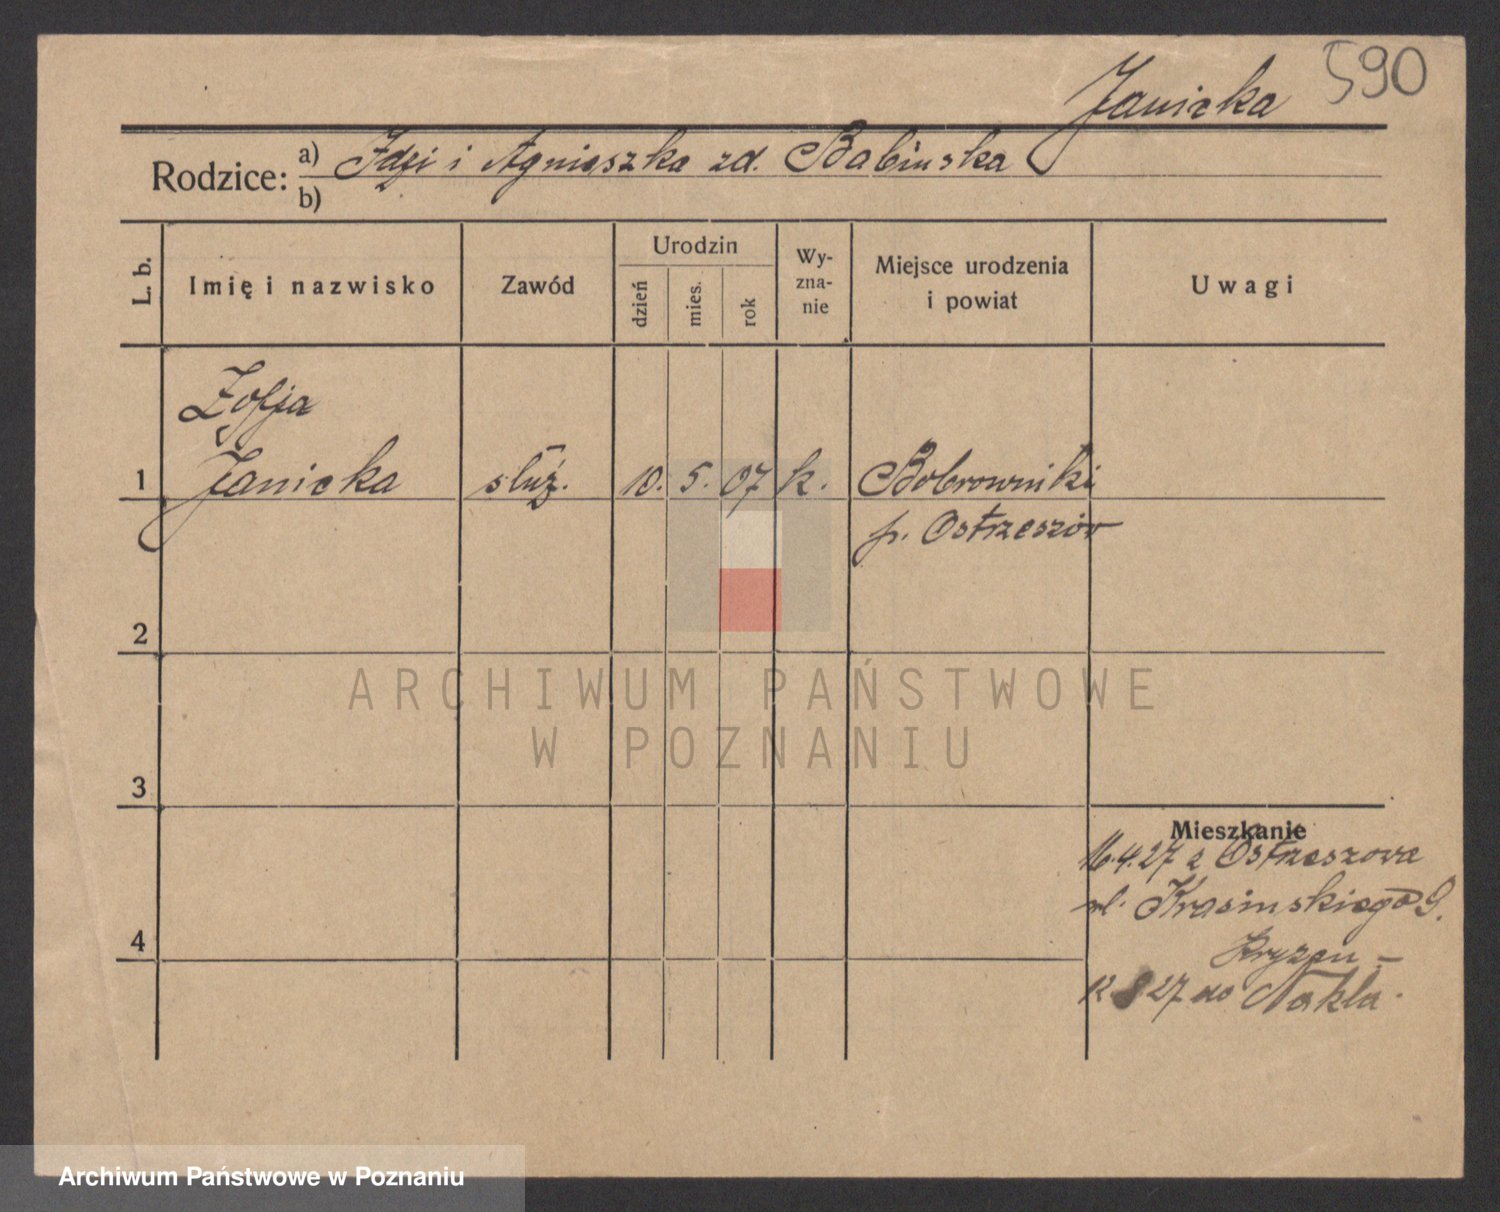 590
Janicka
Rodzice:
a) Idzi i Agnieszka zd. Babinska
b)
L. b.
Imię i nazwisko
Zawód
Urodzin
dzień
mies.
rok
Wy-
zna-
nie
Miejsce urodzenia
i powiat
Uwagi
Zofja
1 Janicka służ. 10. 5. 07 k. Bobrowniki
p. Ostrzeszów
2
ARCHIWUM PAŃSTWOWE
W POZNANIU
3
Mieszkanie
16.4.27 z Ostrzeszowa
ul. Krasinskiego 9.
4
12 8 27 do Nakla.
Archiwum Państwowe w Poznaniu